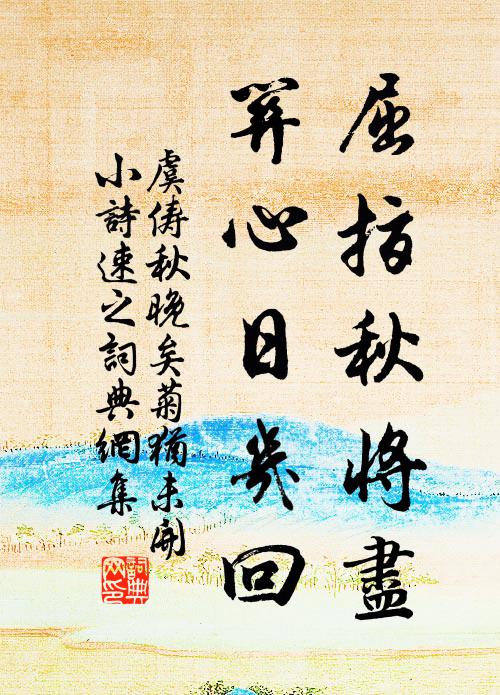 屈指秋將盡
關心日幾回
虞儔秋晚矣菊猶未開
小詩速之詞典網集
詞典
网印